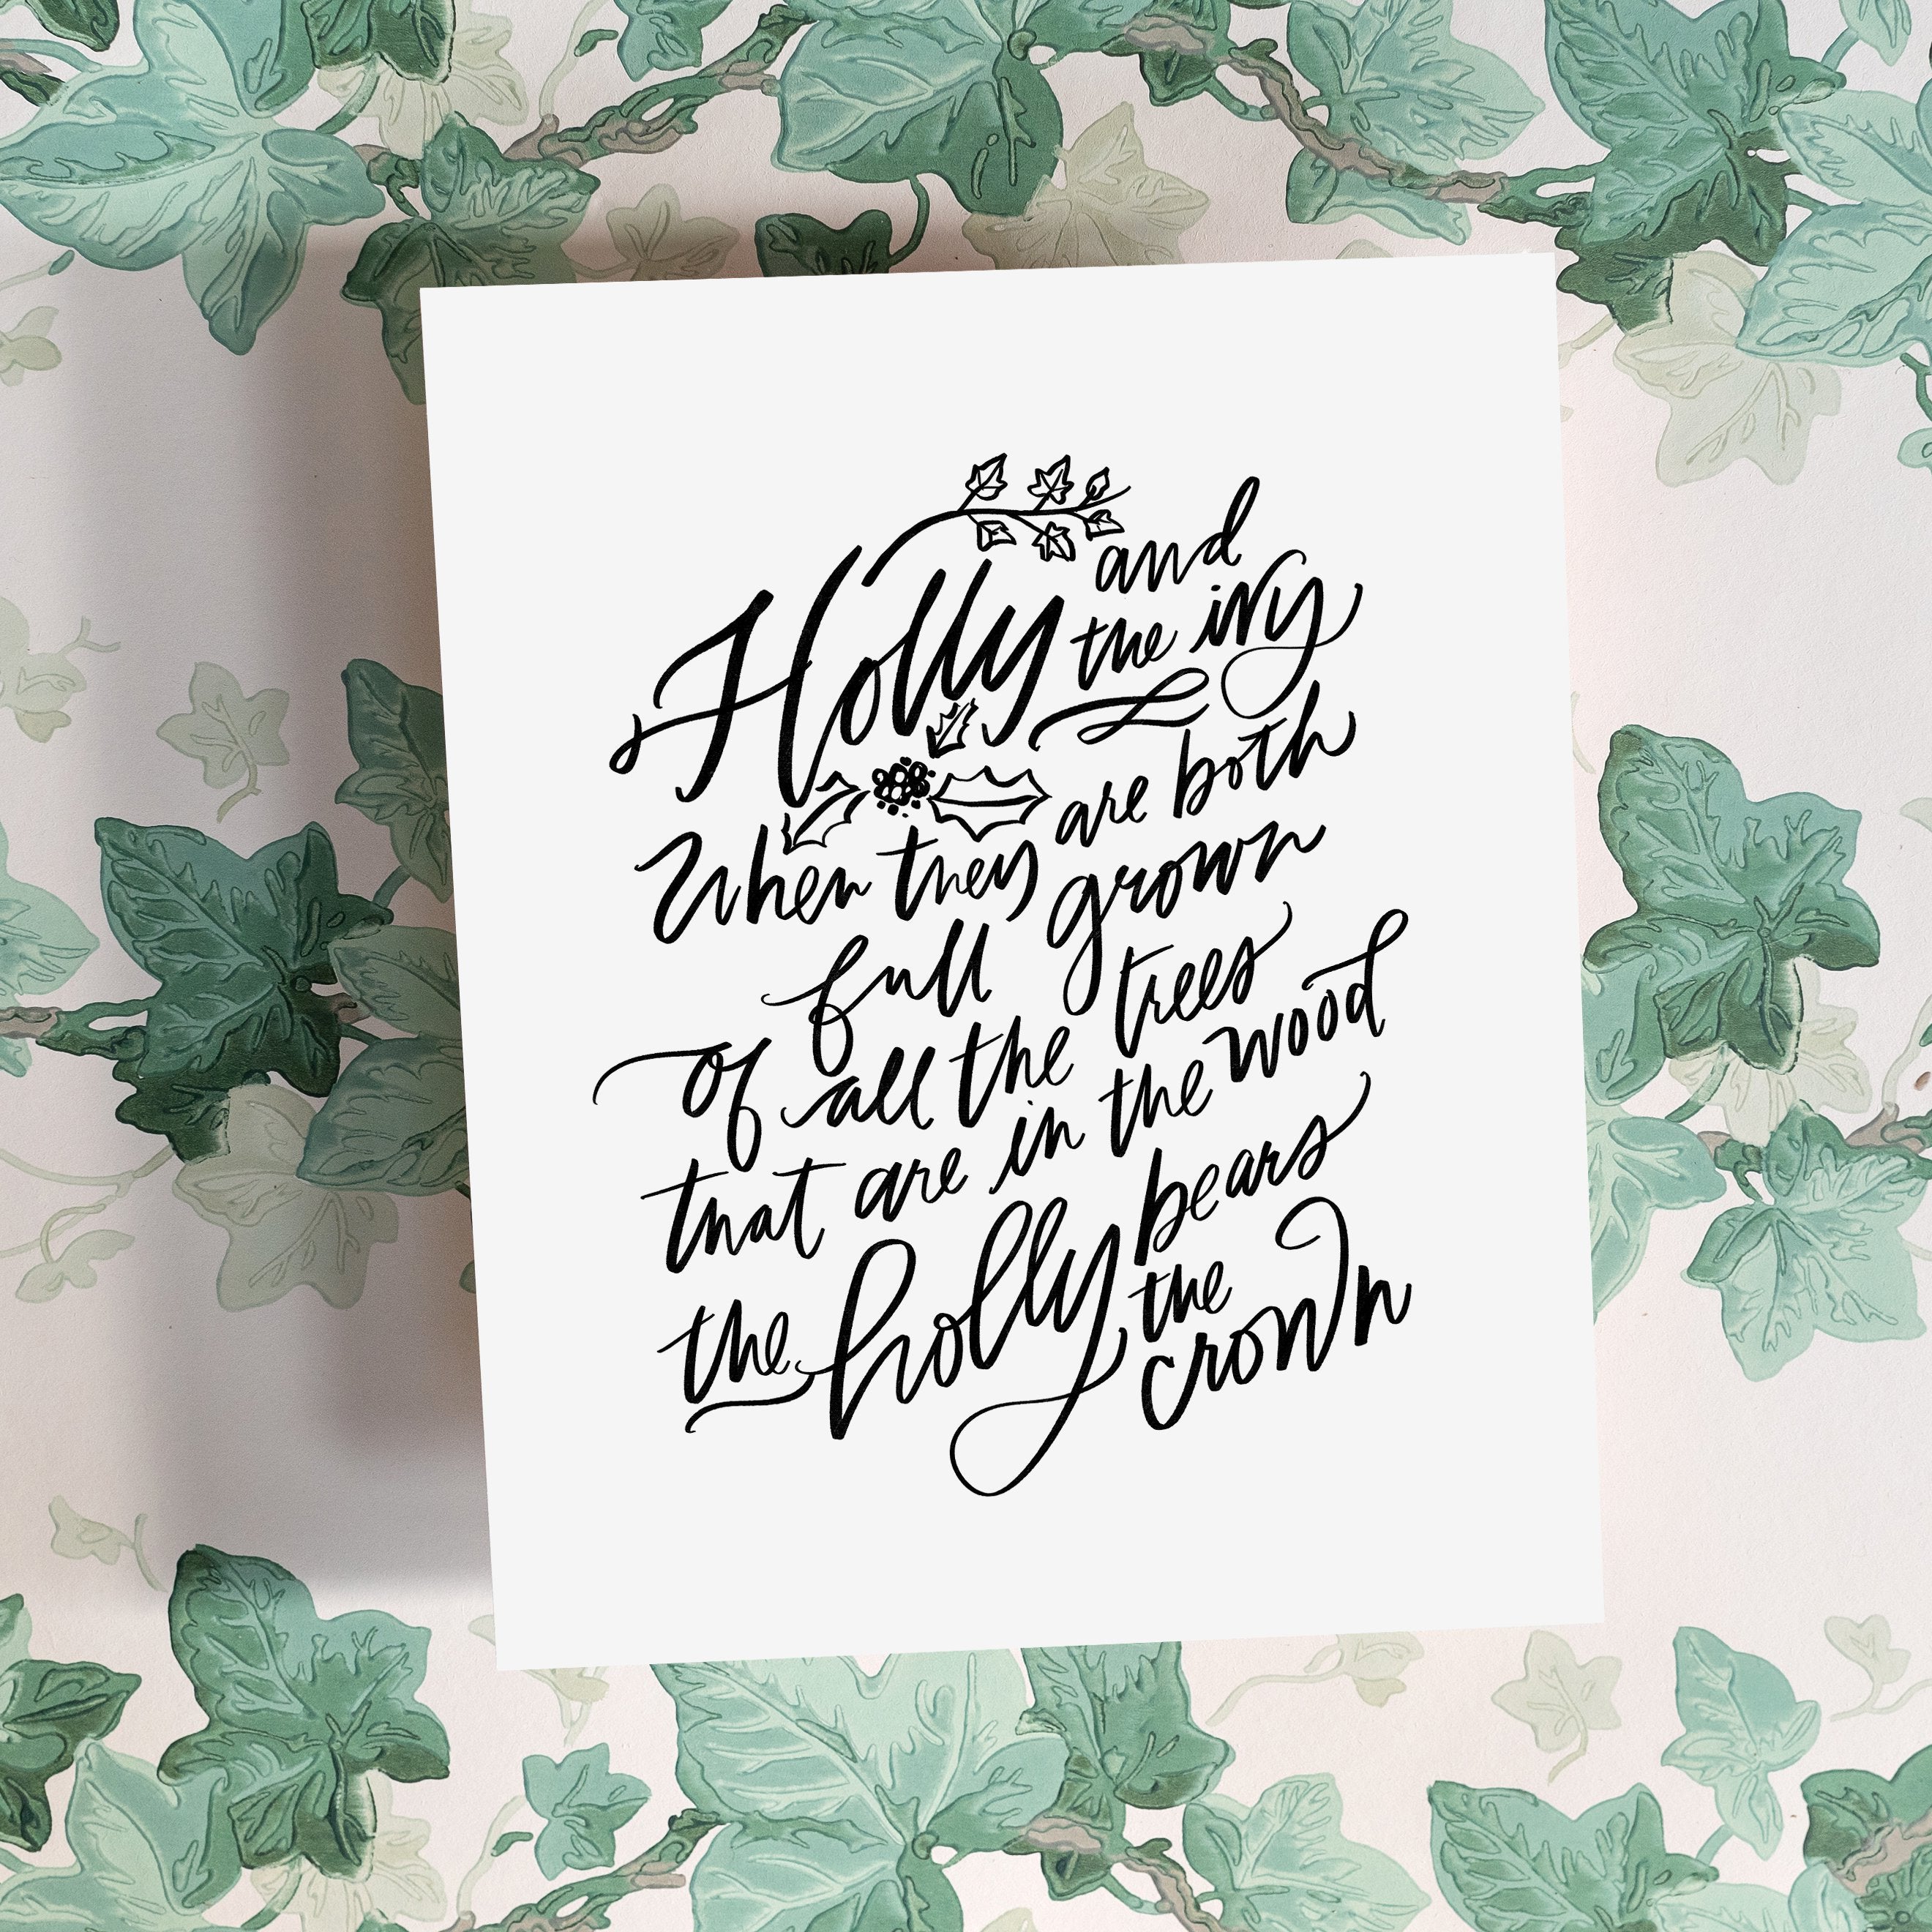 Holly and
the ivy
When they are both
full grown
of all the trees
that are in the wood
the holly bears
the
crown